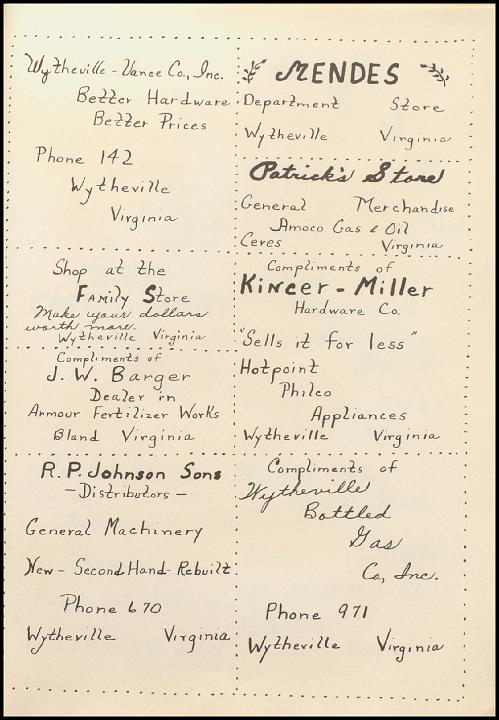 Wytheville-Vance Co., Inc.
Better Hardware
Better Prices
Phone 142
Wytheville
Virginia
Shop at the
Family Store
Make your dollars
worth more.
Wytheville Virginia
Compliments of
J. W. Barger
Dealer in
Armour Fertilizer Works
Bland Virginia
R. P. Johnson Sons
- Distributors -
General Machinery
New - Second Hand - Rebuilt
Phone 670
Wytheville Virginia
MENDES
Department Store
Wytheville Virginia
Patrick's Store
General Merchandise
Amoco Gas & Oil
Ceres Virginia
Compliments of
Kincer - Miller
Hardware Co.
"Sells it for less"
Hotpoint
Philco
Appliances
Wytheville Virginia
Compliments of
Wytheville
Bottled
Gas
Co, Inc.
Phone 971
Wytheville Virginia